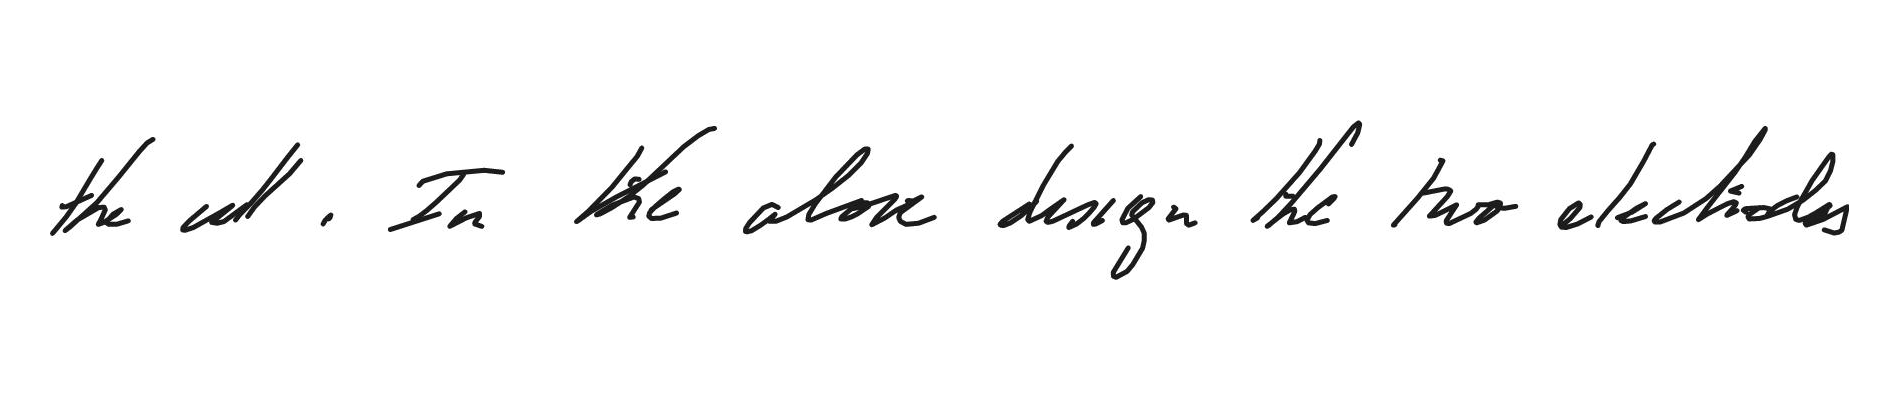 the cell . In the above design the two electrodes